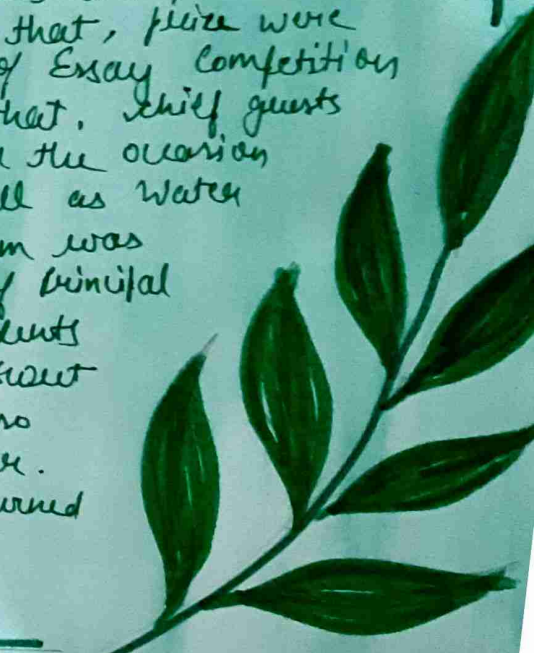 that, prize were
of Essay Competition
that, chief guests
the occasion
ll as Water
m was
f Principal
dents
rout
so
r.
urned